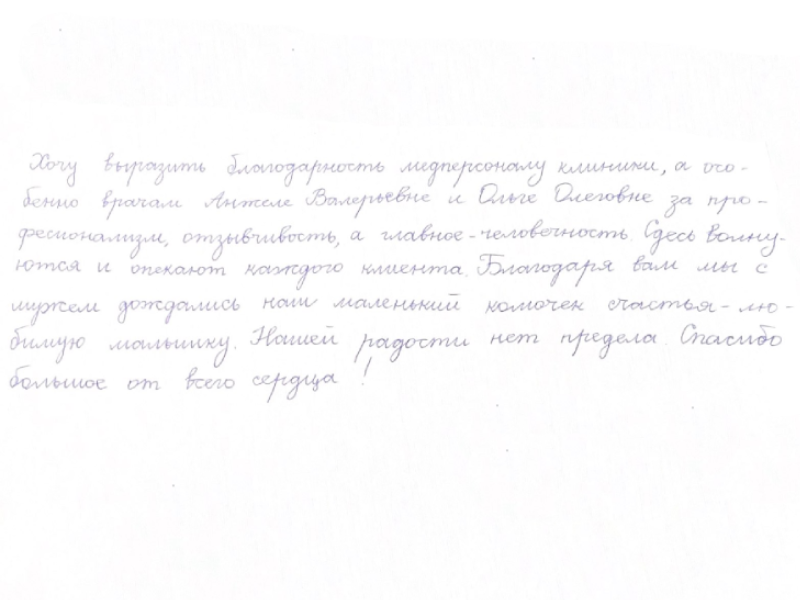 Хочу выразить благодарность медперсоналу клиники, а осо-
бенно врачам Анжеле Валерьевне и Ольге Олеговне за про-
фесионализм, отзывчивость, а главное-человечность. Сдесь волну-
ются и опекают каждого клиента. Благодаря вам мы с
мужем дождались наш маленький комочек счастья-лю-
бимую малышку. Нашей радости нет предела. Спасибо
большое от всего сердца!